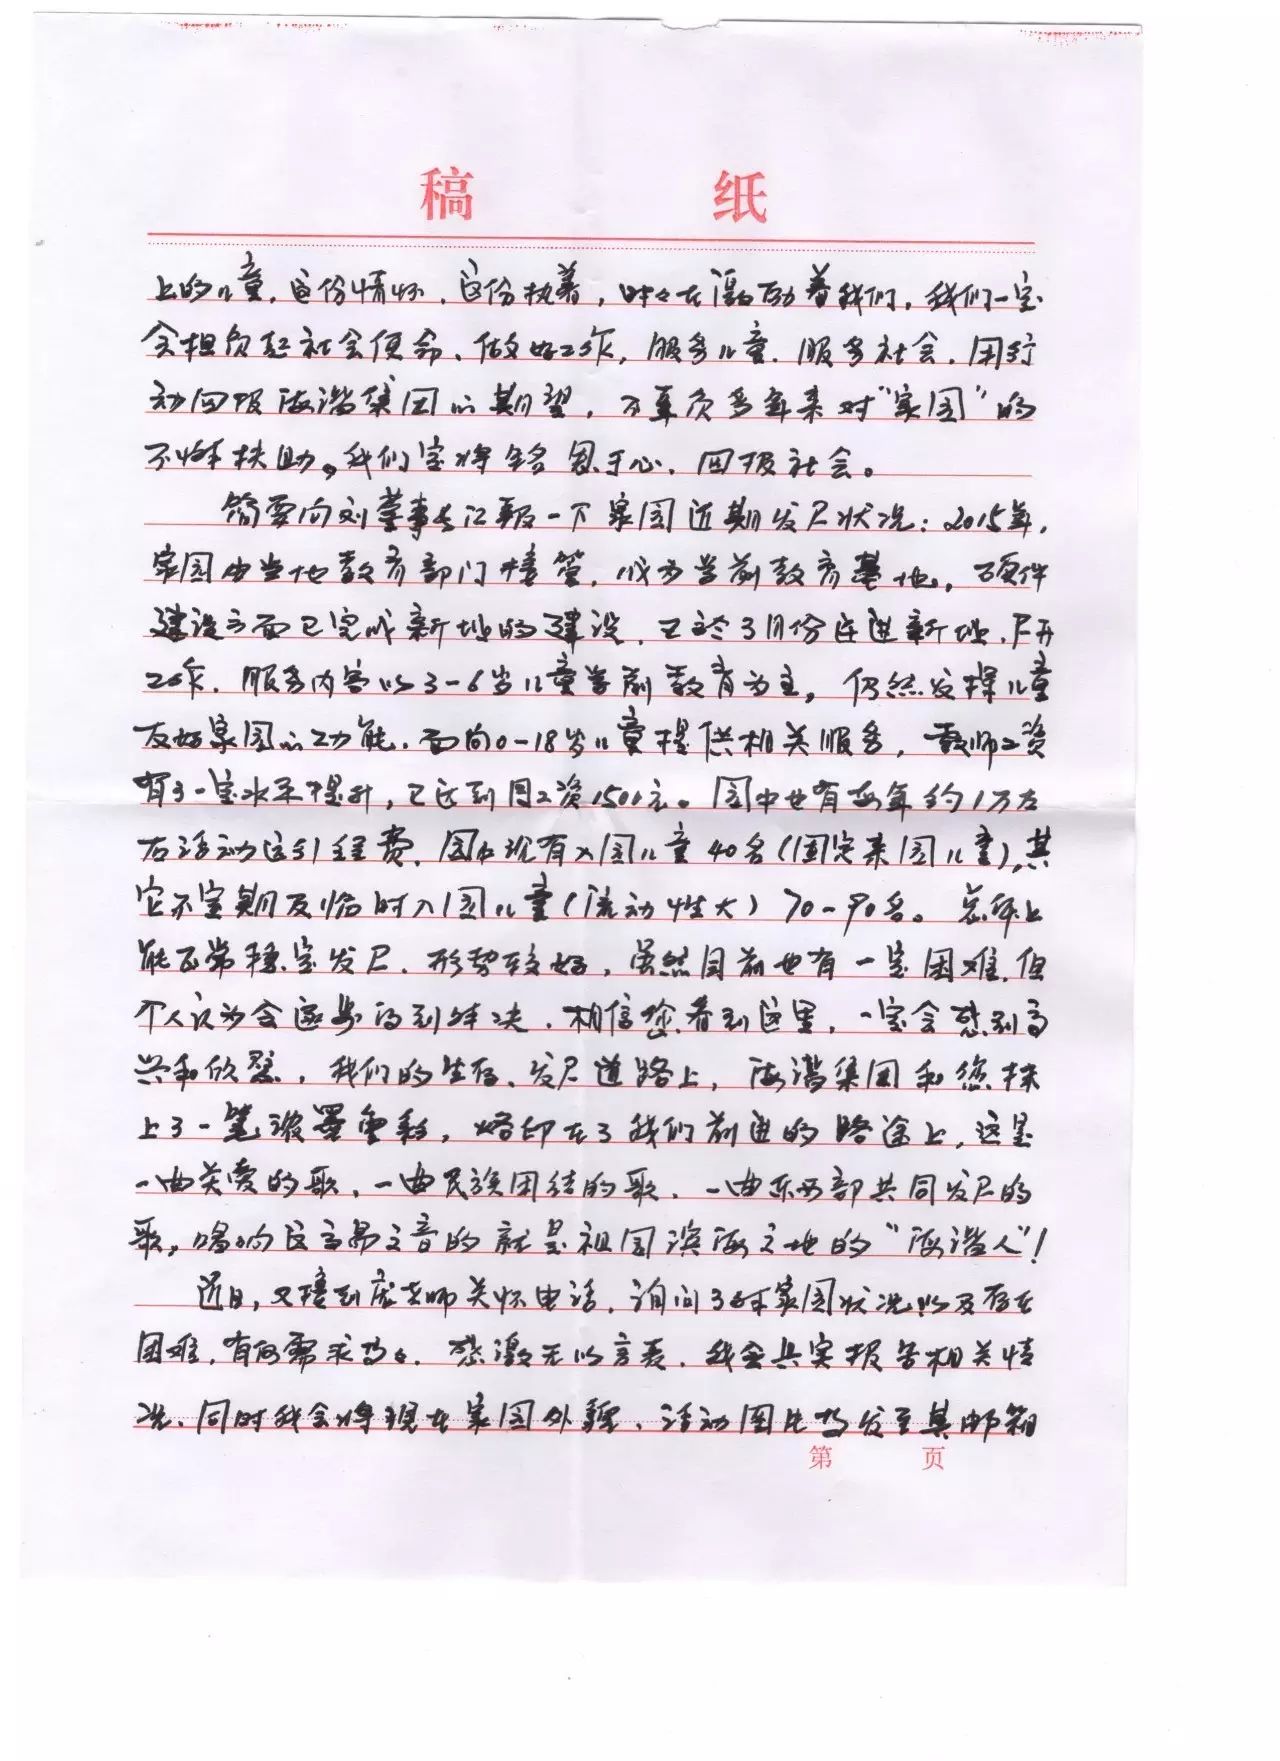 稿 纸
上的儿童,这份情怀,这份执着,时时在激励着我们,我们一定
会担负起社会使命、做好工作,服务儿童,服务社会,用行
动回报海谐集团的期望,不辜负多年来对“家园”的
不懈扶助。我们定将铭恩于心,回报社会。
简要向刘董事长汇报一下家园近期发展状况:2015年,
家园由当地教育部门接管,成为学前教育基地。硬件
建设方面已完成新址的建设,已于3月份迁进新址,展开
工作,服务内容以3-6岁儿童学前教育为主,仍然发挥儿童
友好家园的功能,面向0-18岁儿童提供相关服务,教师工资
有了一定水平提升,已达到月工资1500元。园中也有每年约1万左
右活动运行经费,园中现有入园儿童40名(固定来园儿童),其
它不定期及临时入园儿童(流动性大)70-90名。总体上
能正常稳定发展,形势较好,虽然目前也有一定困难,但
个人认为会逐步得到解决,相信您看到这里,一定会感到高
兴和欣慰,我们的生存、发展道路上,海谐集团和您抹
上了一笔浓墨重彩,烙印在了我们前进的路途上,这是
一曲关爱的歌,一曲民族团结的歌,一曲东西部共同发展的
歌,唱响这高昂之音的就是祖国滨海之地的“海谐人”!
近日,又接到庞老师关怀电话,询问了解家园状况以及存在
困难,有何需求等,感激无以言表,我会具实报告相关情
况,同时我会将现在家园外貌、活动图片等发至其邮箱
第 页